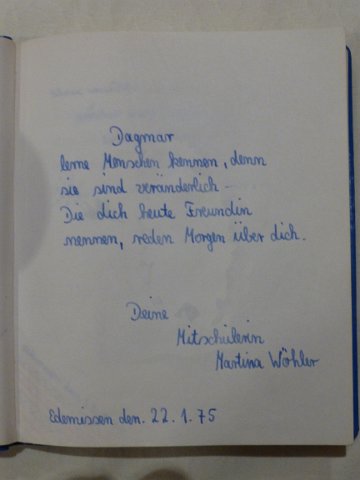 Dagmar
lerne Menschen kennen, denn
sie sind veränderlich –
Die dich heute Freundin
nennen, reden Morgen über dich.
Deine
Mitschülerin
Martina Wöhler
Edemissen den. 22.1.75